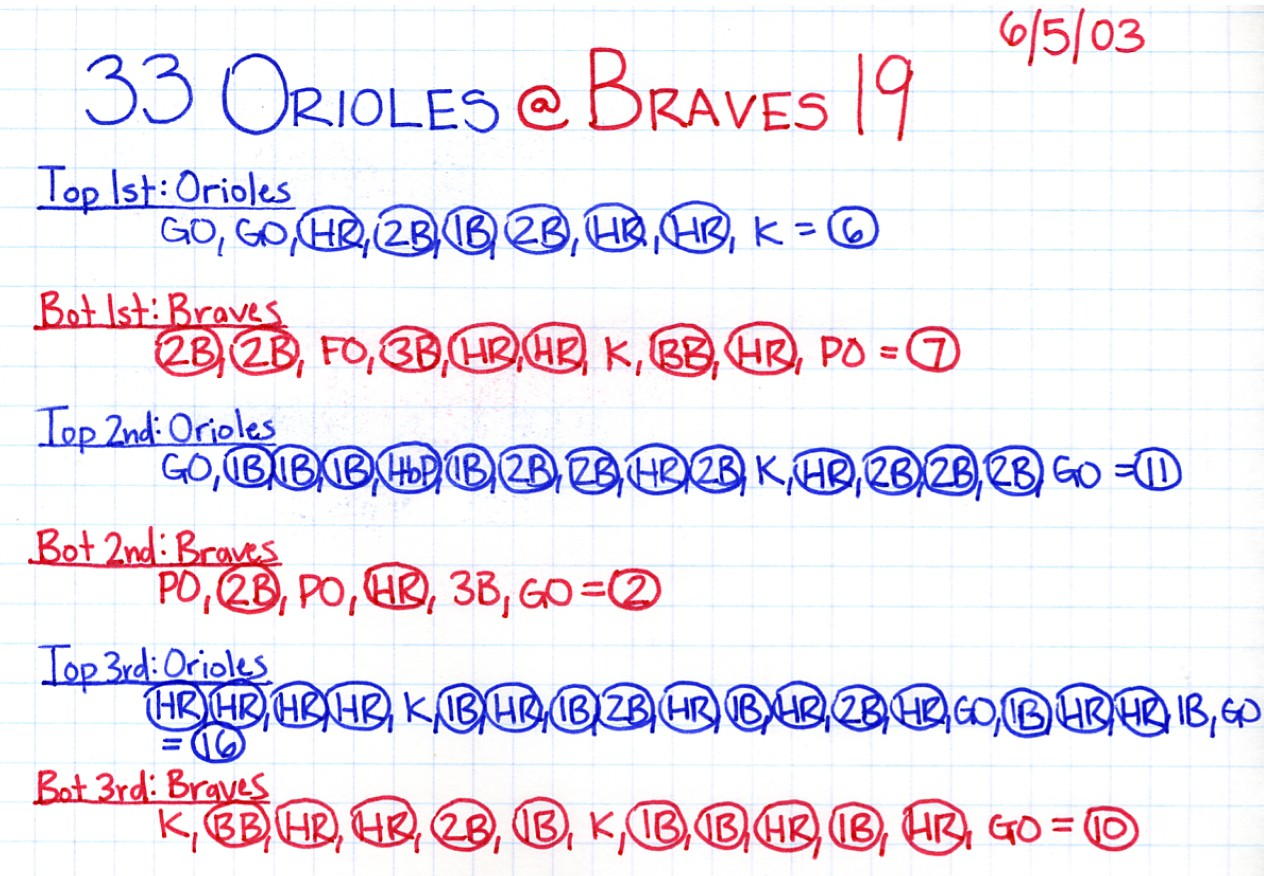 6/5/03
33 ORIOLES @ BRAVES 19
Top 1st: Orioles
GO, GO, HR, 2B, 1B, 2B, HR, HR, K = 6
Bot 1st: Braves
2B, 2B, FO, 3B, HR, HR, K, BB, HR, PO = 7
Top 2nd: Orioles
GO, 1B, 1B, 1B, HbP, 1B, 2B, 2B, HR, 2B, K, HR, 2B, 2B, 2B, GO = 11
Bot 2nd: Braves
PO, 2B, PO, HR, 3B, GO = 2
Top 3rd: Orioles
HR, HR, HR, HR, K, 1B, HR, 1B, 2B, HR, 1B, HR, 2B, HR, GO, 1B, HR, HR, 1B, GO
= 16
Bot 3rd: Braves
K, BB, HR, HR, 2B, 1B, K, 1B, 1B, HR, 1B, HR, GO = 10